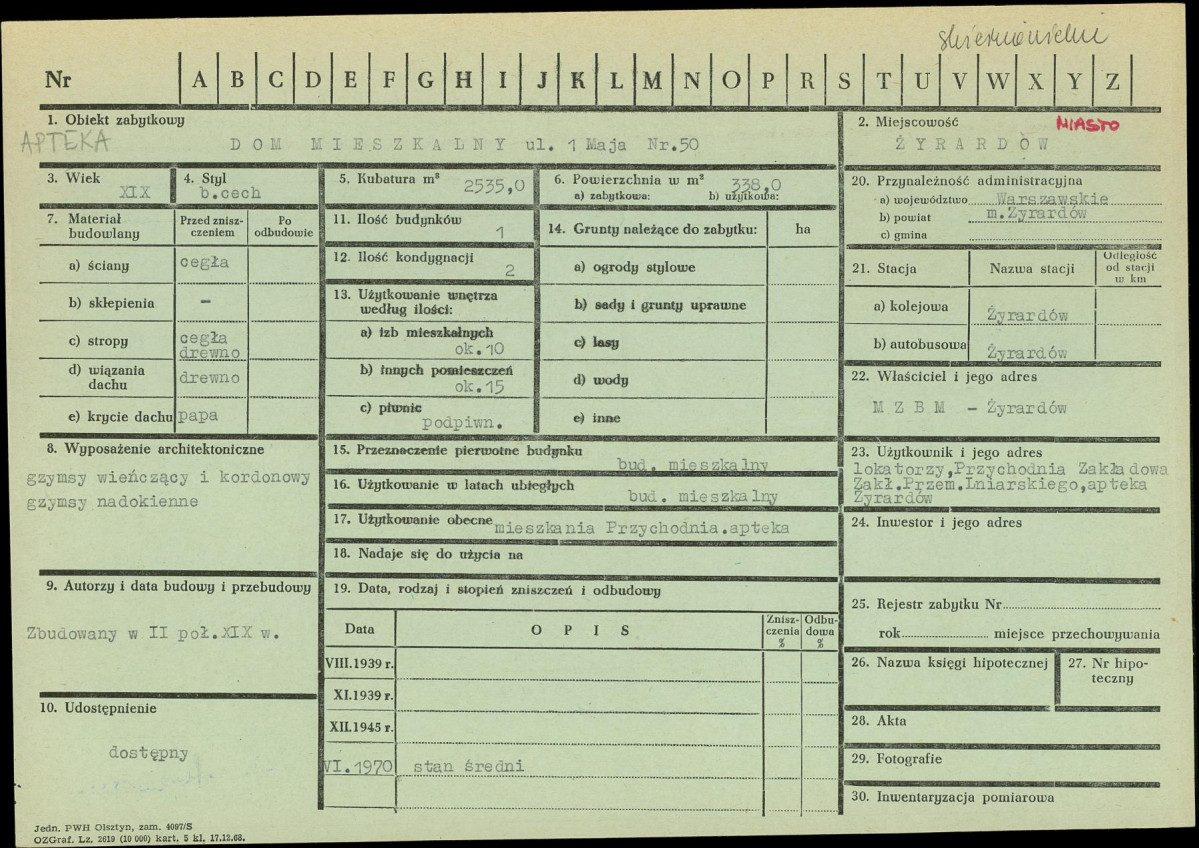 skierniewickie
Nr A B C D E F G H I J K L M N O P R S T U V W X Y Z
1. Obiekt zabytkowy
APTEKA
DOM MIESZKALNY ul. 1 Maja Nr.50
2. Miejscowość
MIASTO
ŻYRARDÓW
3. Wiek
XIX
4. Styl
b.cech
5. Kubatura m³
2535,0
6. Powierzchnia w m²
338,0
a) zabytkowa: b) użytkowa:
7. Materiał budowlany
Przed znisz-
czeniem
Po
odbudowie
a) ściany
cegła
b) sklepienia
-
c) stropy
cegła
drewno
d) wiązania
dachu
drewno
e) krycie dachu
papa
8. Wyposażenie architektoniczne
gzymsy wieńczący i kordonowy
gzymsy nadokienne
9. Autorzy i data budowy i przebudowy
Zbudowany w II poł.XIX w.
10. Udostępnienie
dostępny
11. Ilość budynków
1
12. Ilość kondygnacji
2
13. Użytkowanie wnętrza
według ilości:
a) izb mieszkalnych
ok.10
b) innych pomieszczeń
ok.15
c) piwnic
podpiwn.
14. Grunty należące do zabytku: ha
a) ogrody stylowe
b) sady i grunty uprawne
c) lasy
d) wody
e) inne
15. Przeznaczenie pierwotne budynku
bud. mieszkalny
16. Użytkowanie w latach ubiegłych
bud. mieszkalny
17. Użytkowanie obecne
mieszkania Przychodnia.apteka
18. Nadaje się do użycia na
19. Data, rodzaj i stopień zniszczeń i odbudowy
Data
O P I S
Znisz-
czenia
%
Odbu-
dowa
%
VIII.1939 r.
XI.1939 r.
XII.1945 r.
VI.1970 stan średni
20. Przynależność administracyjna
a) województwo Warszawskie
b) powiat m.Żyrardów
c) gmina
21. Stacja
Nazwa stacji
Odległość
od stacji
w km
a) kolejowa
Żyrardów
b) autobusowa
Żyrardów
22. Właściciel i jego adres
M Z B M - Żyrardów
23. Użytkownik i jego adres
lokatorzy,Przychodnia Zakładowa
Zakł.Przem.Lniarskiego,apteka
Żyrardów
24. Inwestor i jego adres
25. Rejestr zabytku Nr
rok miejsce przechowywania
26. Nazwa księgi hipotecznej
27. Nr hipo-
teczny
28. Akta
29. Fotografie
30. Inwentaryzacja pomiarowa
Jedn. PWH Olsztyn, zam. 4097/S
OZGraf. Lz. 2619 (10 000) kart. 5 kl. 17.12.68.